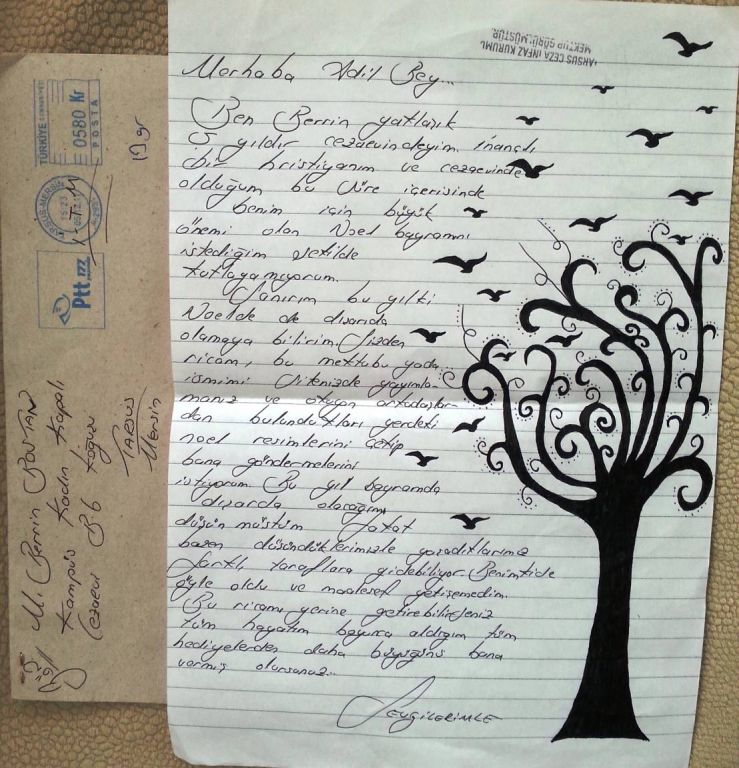 TARSUS CEZA İNFAZ KURUMU
MEKTUP GÖRÜLMÜŞTÜR.
Merhaba Adil Bey...
Ben Berrin yatlazık
5 yıldır cezaevindeyim. İnançlı
bir hristiyanım ve cezaevinde
olduğum bu süre içerisinde
benim için büyük
önemi olan Noel bayramını
istediğim şekilde
kutlayamıyorum.
Sanırım bu yılki
Noelde de dışarıda
olamaya bilirim. Sizden
ricam, bu mektubu yada
ismimi sitenizde yayımla-
manız ve okuyan
dan bulundukları yerdeki
noel resimlerini çekip
bana göndermelerini
istiyorum. Bu yıl bayramda
dışarda olacağımı
düşün müştüm fakat
bazen düşündüklerimizle
farklı taraflara gidebiliyor. Benimkide
öyle oldu ve maalesef yetişemedim.
Bu ricamı yerine getirebilirseniz
tüm hayatım boyunca aldığım tüm
hediyelerden daha büyüğünü bana
vermiş olursunuz..
Sevgilerimle
TÜRKİYE CUMHURİYETİ
0580 Kr
POSTA
TARSUS-MERSİN
Ptt
19 gr
M. Berrin
Kampüs Kadın Kapalı
Cezaevi B6 Koğuşu
TARSUS
Mersin